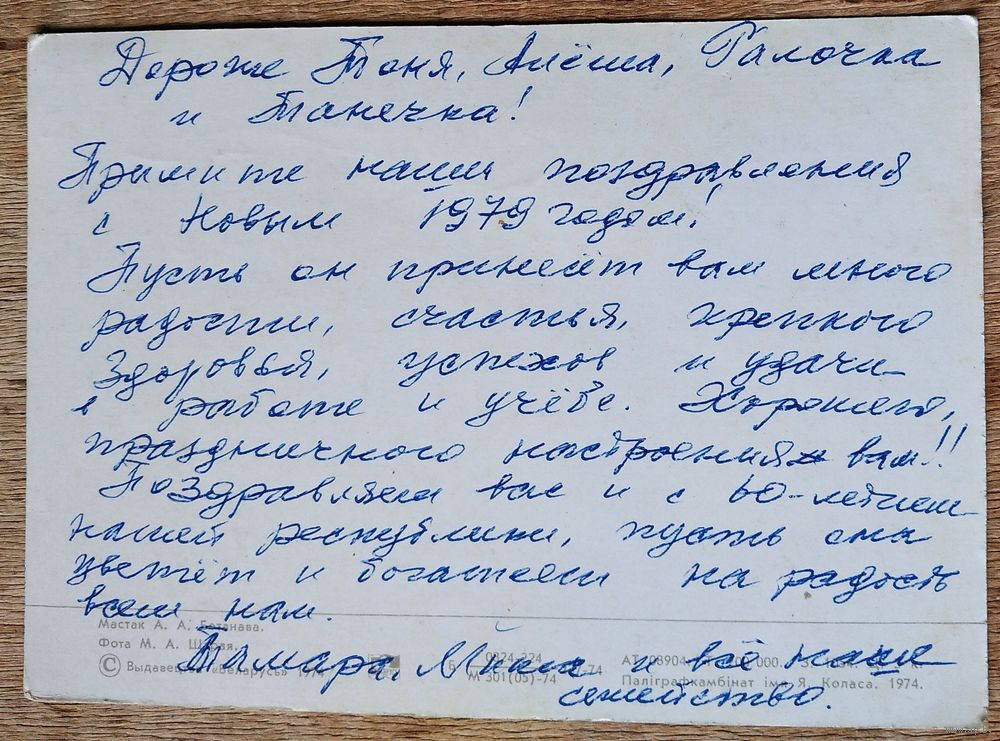 Дорогие Тоня, Алёша, Галочка
и Танечка!
Примите наши поздравления
с Новым 1979 годом!
Пусть он принесёт вам много
радости, счастья, крепкого
здоровья, успехов и удачи
в работе и учёбе. Хорошего,
праздничного настроения вам!!
Поздравляем вас и с 60-летием
нашей республики, пусть она
цветёт и богатеет на радость
всем нам.
Мастак А. А. Батанава.
Фота М. А.
Тамара, и всё наше
семейство.
© Выдавецтва «Беларусь» 1974
0824-324
М 301(05)-74
АТ 08904
Паліграфкамбінат імя Я. Коласа. 1974.